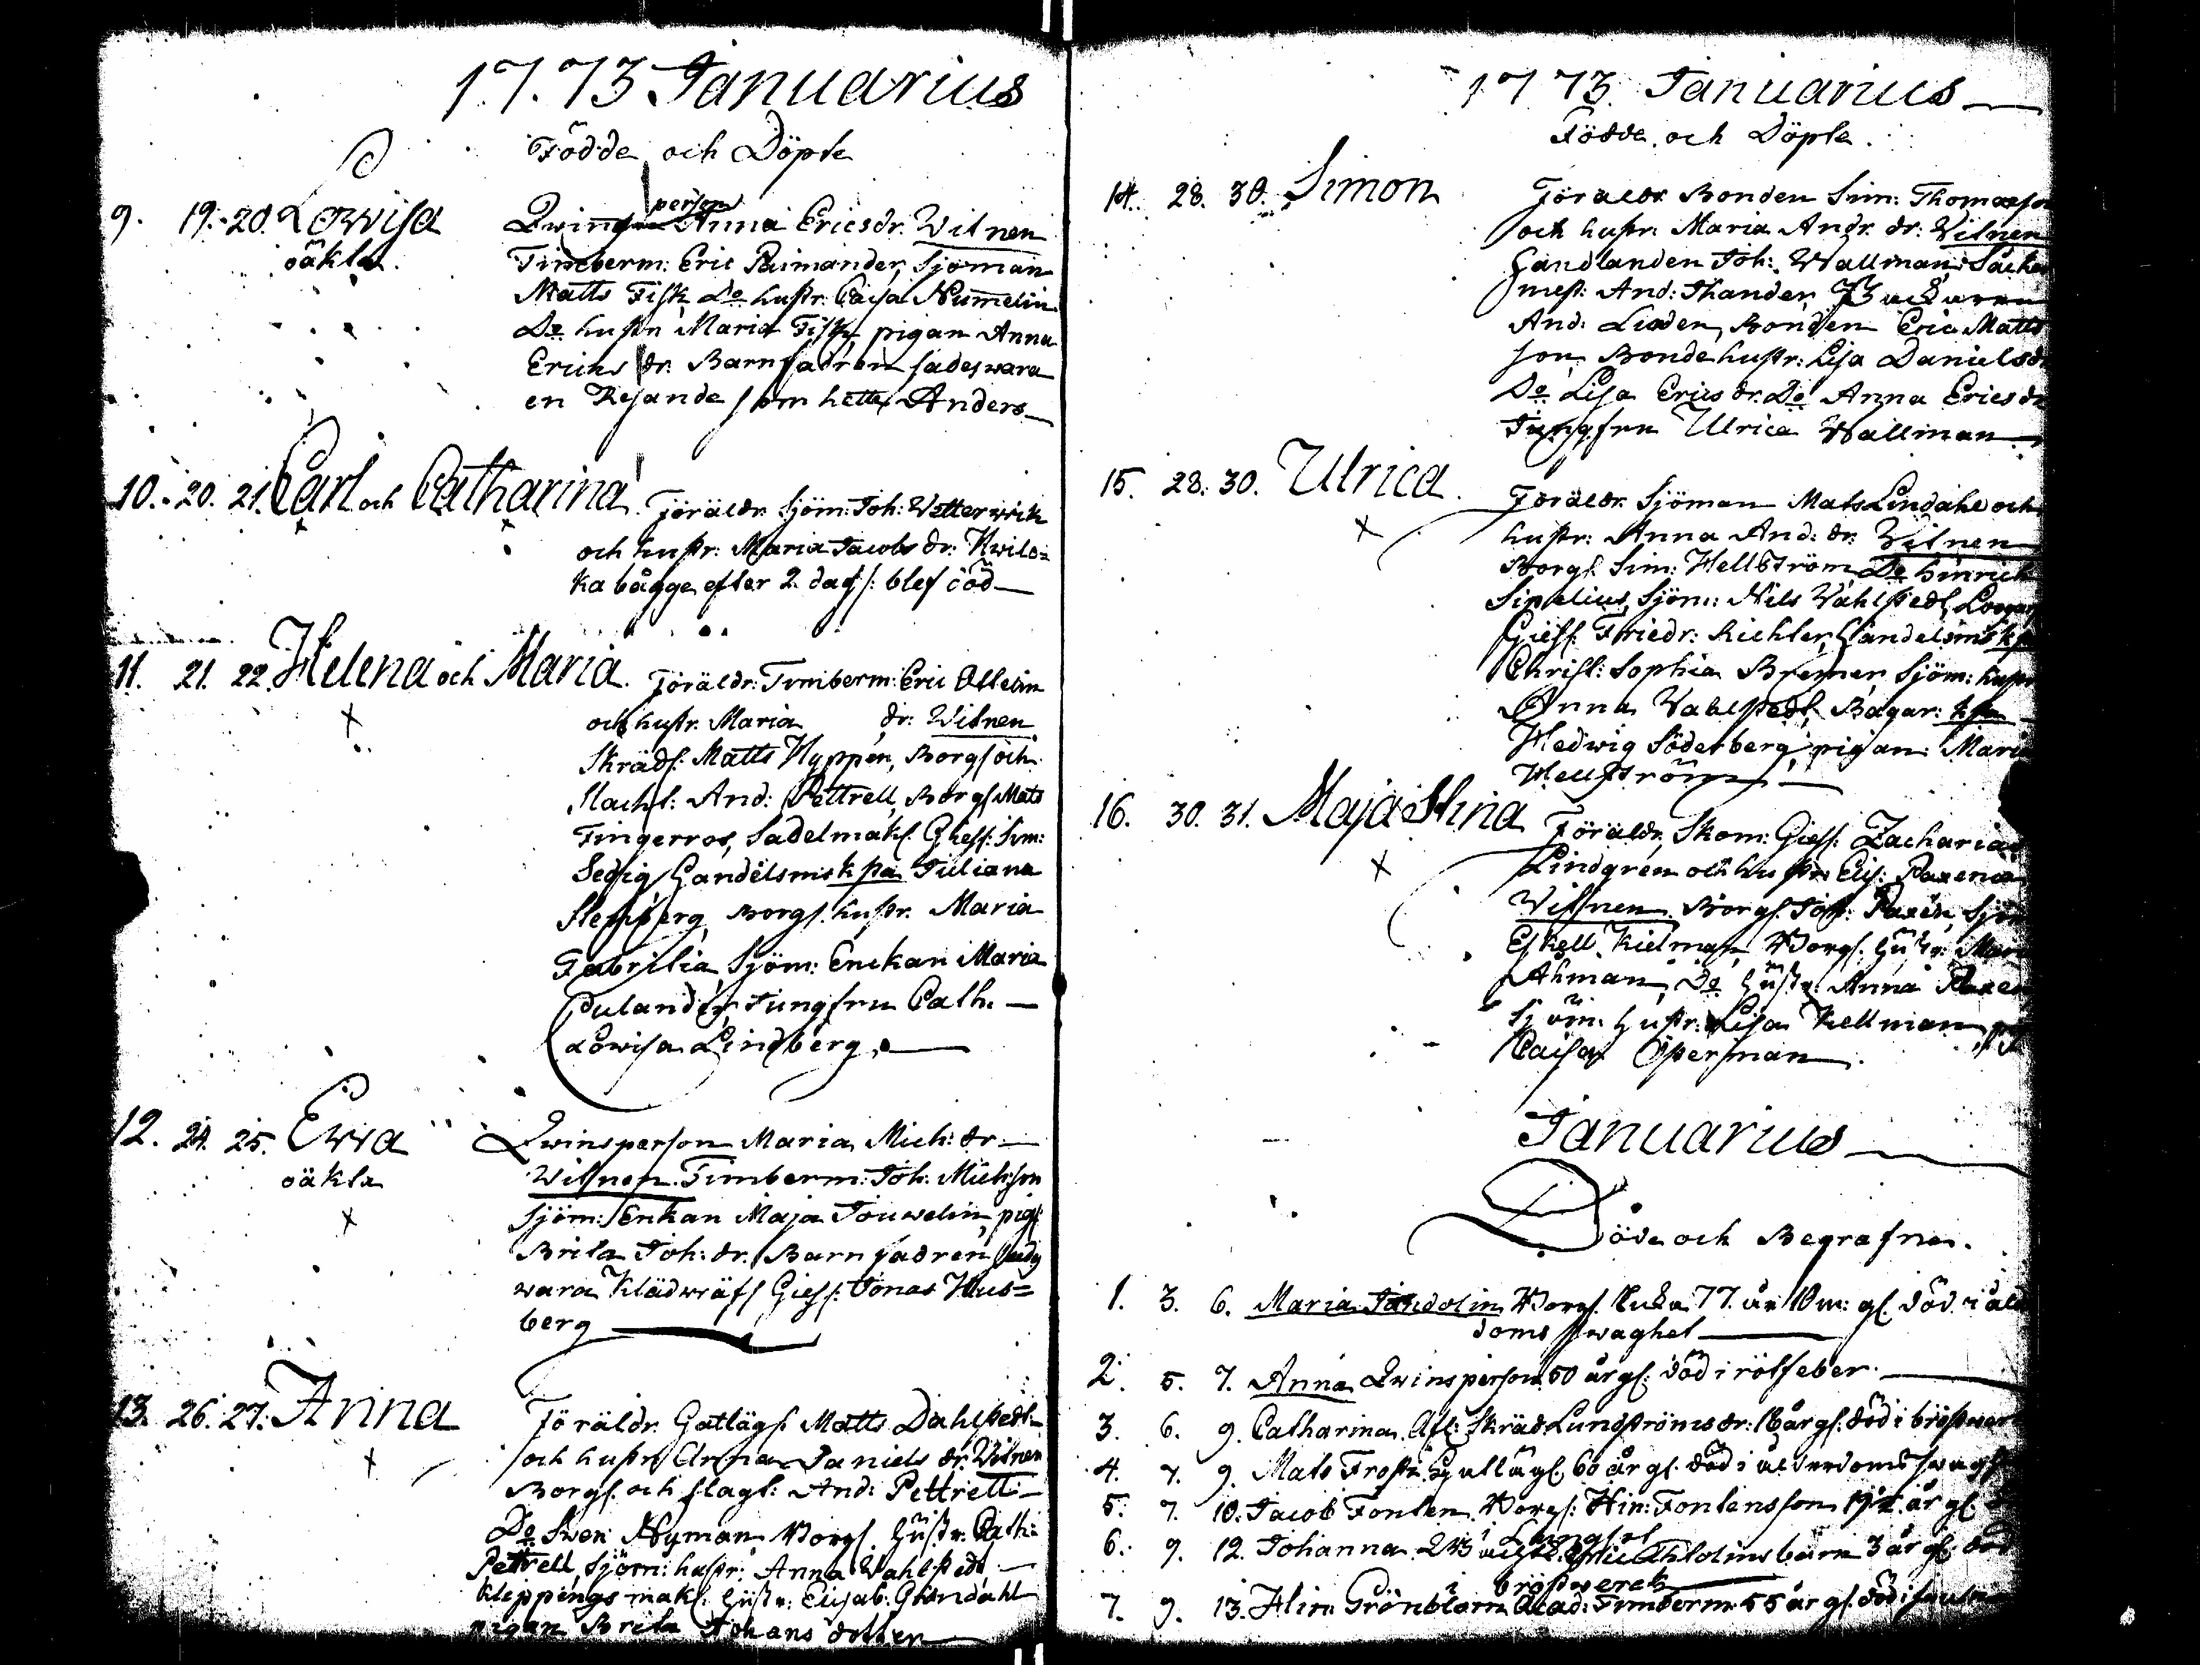 1773 Januarius
Födde och Döpte
9. 19. 20. Lowisa
oäkta
Qwins person Anna Ericsdr. Witnen
Timberm: Eric Raimander, Sjöman
Matts Fisk Do hustr: Caisa Numelin
Do hustr Maria Fisk, pigan Anna
Erichs dr. Barnfadren sades wara
en Resande som hette Anders
10. 20. 21. Carl och Catharina
Föräldr. Sjöm: Joh: Wetterwik
och hustr: Maria Jacobs dr:
ka bägge efter 2 dag: blef död
11. 21. 22. Helena och Maria
Föräldr: Timberm: Eric
och hustr. Maria dr: Witnen
Skräds: Matts Hyppen, Borgs och
Slacht: And: Pettrell, Borgs Mats
Fingerroos, Sadelmaks. Giess: Sim:
Sedig Handelsms kpa Juliana
Borgs. hustr. Maria
Sjöm: Enckan Maria
Pulander, Jungfru Cath.
Lowisa Lindberg.
12. 24. 25. Ewa
oäkta
Qwinsperson Maria Mich: dr
Witnen. Timberm: Joh: Michson
Sjöm: Enkan Maja Jouwelin, pig:
Brita Joh: dr. Barnfadren sades
wara Klädwäfs Giess: Jonas Hus=
berg
13. 26. 27. Anna
Föräldr. Matts Dahlstedt
och hustr Anna Daniels dr. Witnen
Borgs. och slagt: And: Pettrell
Do Swen Nyman, Borgs. Hustr. Cath:
Pettrell, Sjöm: hustr: Anna Wahlstedt
Kleppingsmaks. Hustr: Elisab: Gröndahl
pigan Brita Johans dotter
1773 Januarius
Födde och Döpte
14. 28. 30. Simon
Föräldr Bonden Sim: Thomasson
och hustr. Maria Andr. dr: Witnen
Handlanden Joh: Wallman, Såcker
mest: And: Thander,
And: Linden, Bonden Eric Matts
son Bondehustr: Lisa Danielsdr
Do Lisa Ericsdr. Do Anna Ericsdr
Jungfru Ulrica Wallman
15. 28. 30. Ulrica
Föräldr. Sjöman Mats Lindahl och
hustr: Anna And: dr. Witnen
Borgs. Sim: Hellström Do Hinrich
Sipelius, Sjöm: Nils Wahlstedt,
Giess. Friedr: Richter, Handelsms kpa
Christ: Sophia Bremer Sjöm: hustr
Anna Wahlstedt, Bagar: kpa
Hedwig Söderberg, pigan: Maria
Hellström
16. 30. 31. Maja Stina
Föräldr, Skom: Giess: Zacharias
Lindgren och hustr Elis: Paxenia
Witnen. Borgs. Joh: Paxen, Sjöm
Eskell Kielman, Borgs: Hustr: Maria
Ahman, Do Hustr: Anna Paxen
Sjöm: Hustr: Lisa Kellman, pig
Caisa Operman
Januarius
Döde och Begrafne.
1. 3. 6. Maria Borgs. Enka 77. år 10 m: gl. död i ål
doms swaghet
2. 5. 7. Anna Qwinsperson 50 år gl: död i rötfeber.
3. 6. 9. Catharina Afl: Skräd: Lundströms dr: 16 år gl: död i bröstwerk
4. 7. 9. Mats Frost 60 år gl. död i ålderdoms swagh
5. 7. 10. Jacob Fonten Borgs: Hin: Fontens son 19 år gl.
6. 9. 12. Johanna barn 3 år gl: död
i bröstwerck
7. 9. 13. Hin: Grönblom Acad: Timberm: 55 år gl. död i